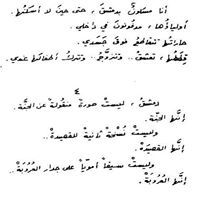 أنا مسكونٌ بدمشق، حتى حين لا أسكنُها.
أولياؤُها مدفونون في داخلي.
حاراتُها تتقاطعُ فوق جَسَدي.
قِطَطُها، تعشقُ.. وتتزوّجُ.. وتتركُ أطفالَها عندي.
دمشقُ، ليستْ صورةً منقولةً عن الجنّة.
إنّها الجنّة.
وليستْ نسخةً ثانيةً للقصيدةْ..
إنّها القصيدةْ.
وليستْ سيفاً أمويّاً على جدار العُرُوبةْ..
إنّها العُرُوبةْ.